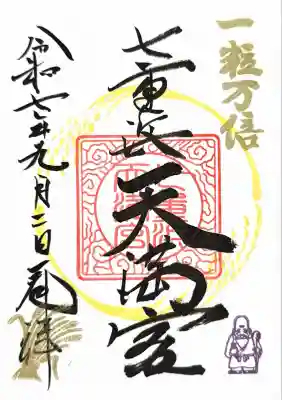 一粒万倍
七重浜天満宮
令和七年九月二日 奉拝